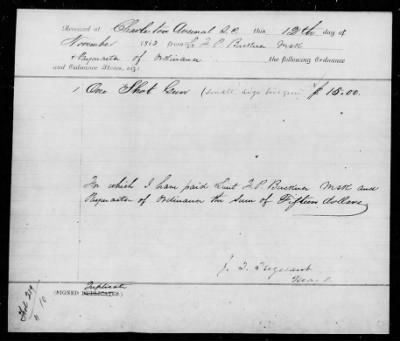 Received at Charleston Arsenal S.C. this 12th day of
November 1862 from Lt. F. P. Buckner MSK
& Paymaster of Ordnance the following Ordnance
and Ordnance Stores, viz:
1 One Shot Gun (small size) $15.00
For which I have paid Lieut F. P. Buckner MSK and
Paymaster of Ordnance the sum of Fifteen dollars
Triplicate
(SIGNED DUPLICATES.)